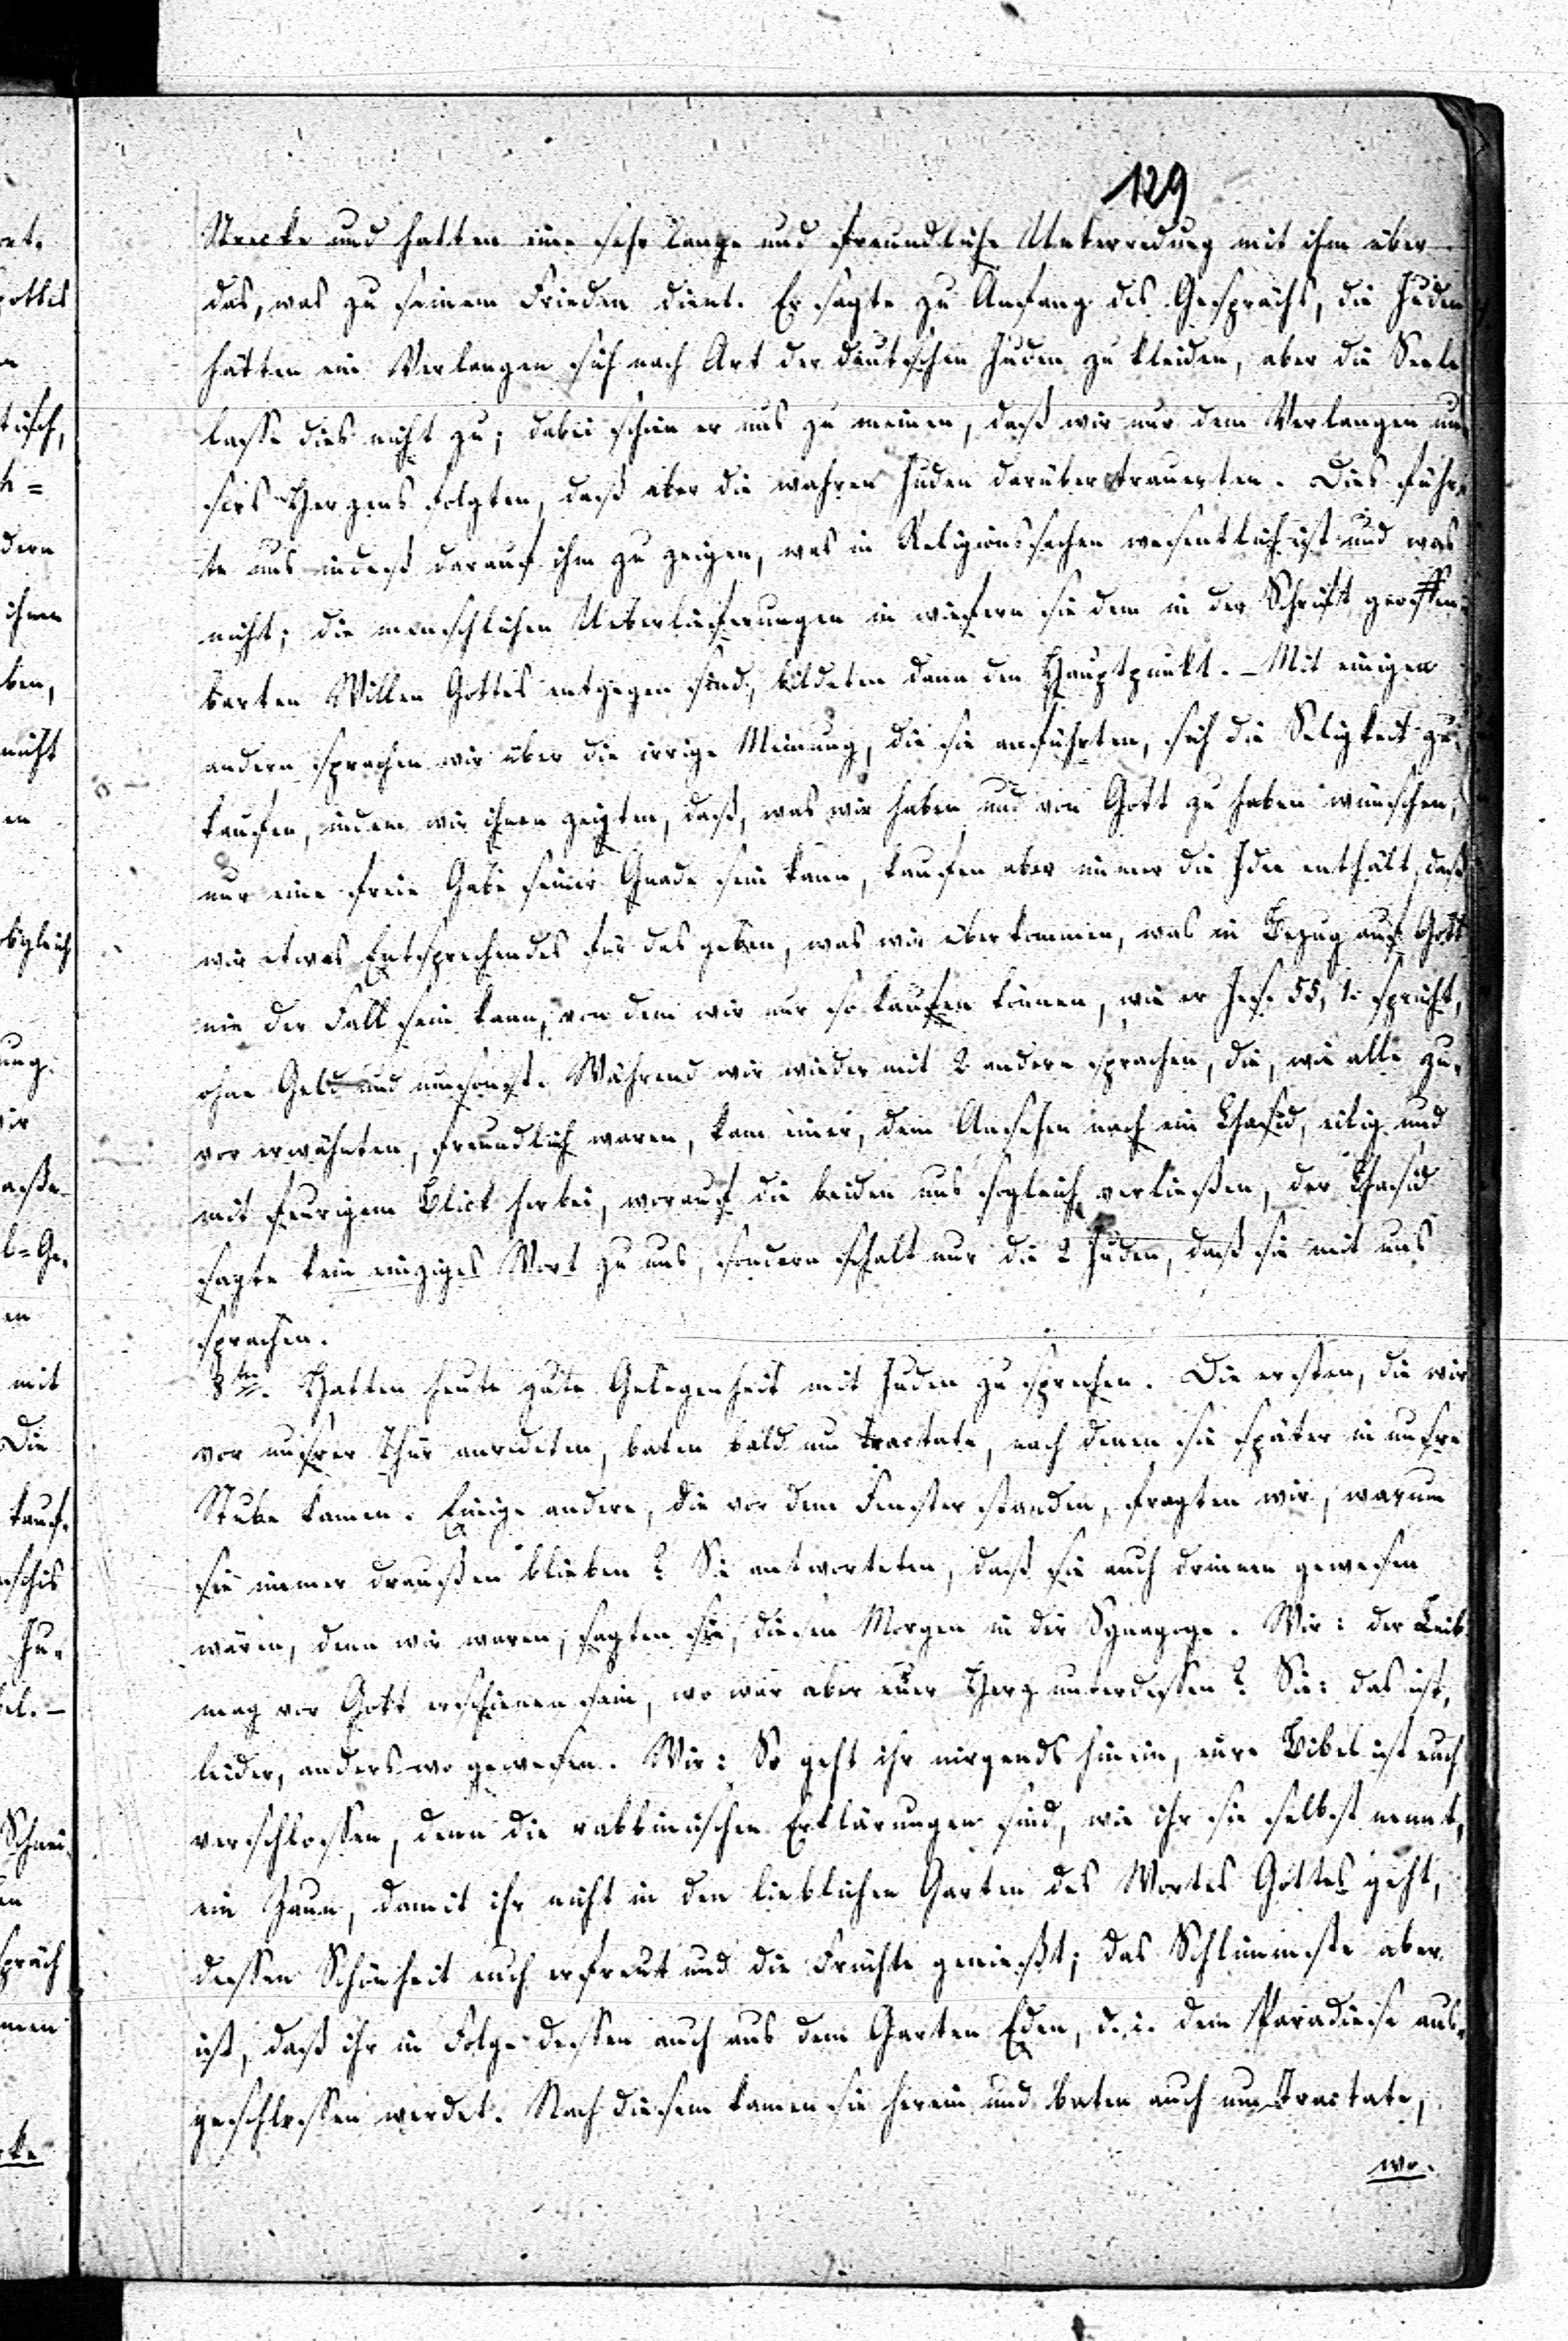 129
Strecke und hatten eine sehr lange und freundliche Unterredung mit ihm über
das, was zu seinem Frieden dient. Er sagte zu Anfang des Gesprächs, die Juden
hätten ein Verlangen sich nach Art der deutschen Juden zu kleiden, aber die Seele
lasse dies nicht zu; dabei schien er uns zu meinen, daß wir nur dem Verlangen un-
sers Herzens folgten, daß aber die wahren Juden darüber trauerten. Dies führ-
te uns indeß darauf ihm zu zeigen, was in Religionssachen wesentlich ist und was
nicht; die menschlichen Ueberlieferungen in wiefern sie dem in der Schrift geoffen-
barten Willen Gottes entgegen sind, bildeten dann den Hauptpunkt. – Mit einigen
andern sprachen wir über die irrige Meinung, die sie anführten, sich die Seligkeit zu
kaufen, indem wir ihnen zeigten, daß, was wir haben und von Gott zu haben wünschen,
nur eine freie Gabe seiner Gnade sein kann, kaufen aber immer die Idee enthält, daß
wir etwas Entsprechendes für das geben, was wir überkommen, was in Bezug auf Gott
nie der Fall sein kann, von dem wir nur so kaufen können, wie er Jes. 55, 1. spricht,
ohne Geld und umsonst. Während wir wieder mit 2 andern sprachen, die, wie alle zu-
vor erwähnten, freundlich waren, kam einer, dem Ansehen nach ein Chasid, eilig und
mit feurigem Blick herbei, worauf die beiden uns sogleich verließen, der Chasid
sagte kein einziges Wort zu uns, sondern schalt nur die 2 Juden, daß sie mit uns
sprachen.
8ten. Hatten heute gute Gelegenheit mit Juden zu sprechen. Die ersten, die wir
vor unsrer Thür anredeten, baten bald um Tractate, nach denen sie später in unsre
Stube kamen. Einige andere, die vor dem Fenster standen, fragten wir, warum
sie immer draußen blieben? Sie antworteten, daß sie auch drinnen gewesen
wären, denn wir waren, sagten sie, diesen Morgen in der Synagoge. Wir: der Leib
mag vor Gott erschienen sein, wo war aber euer Herz unterdessen? Sie: das ist,
leider, anders wo gewesen. Wir: So geht ihr nirgends hinein, eure Bibel ist euch
verschlossen, denn die rabbinischen Erklärungen sind, wie ihr sie selbst nennt,
ein Zaun, damit ihr nicht in den lieblichen Garten des Wortes Gottes geht,
dessen Schönheit euch erfreut und die Früchte genießt; das Schlimmste aber
ist, daß ihr in Folge dessen auch aus dem Garten Eden, d. i. dem Paradiese aus-
geschlossen werdet. Nach diesem kamen sie herein und baten auch um Tractate,
wo-